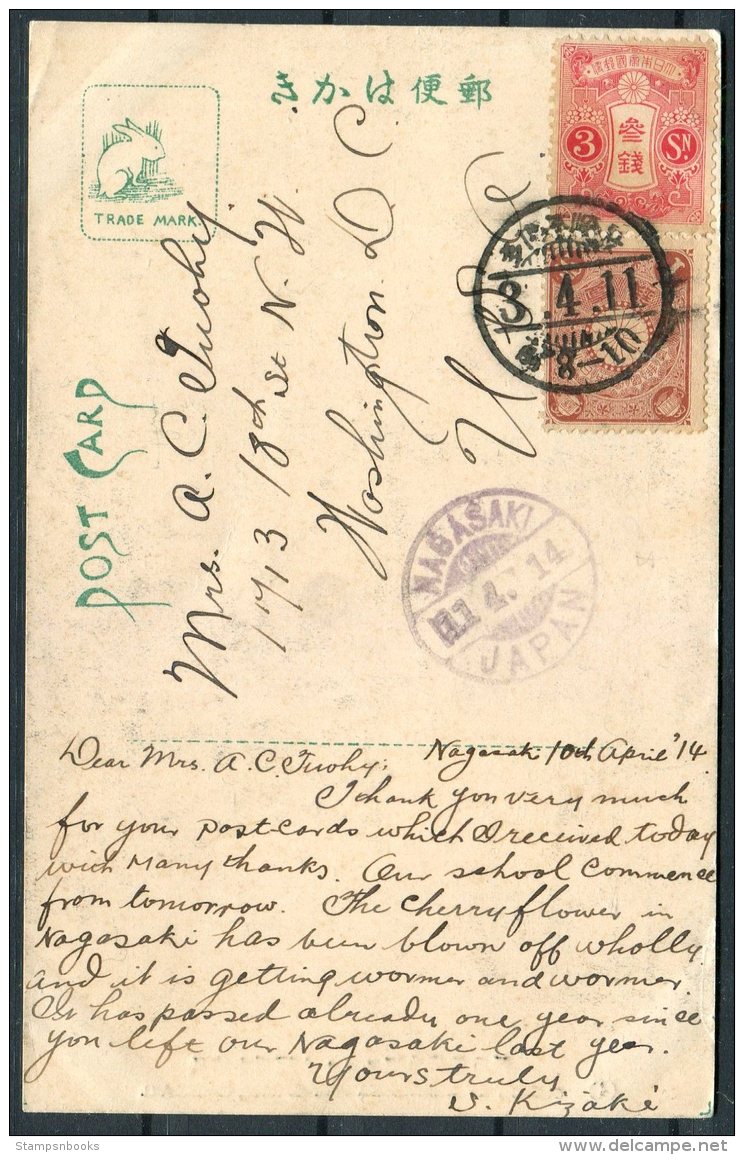 きかは便郵
TRADE MARK.
POST CARD
大日本帝國郵便
3
參錢
SN
3.4.11
8-10
Mrs. A. C. Tuohy.
1713 18th St N. W.
Washington D. C.
U. S.
NAGASAKI
11 4. 14
JAPAN
Nagasaki 10th April '14
Dear Mrs. A. C. Tuohy;
Thank you very much
for your post-cards which I received today
with many thanks. Our school commence
from tomorrow. The cherry flower in
Nagasaki has been blown off wholly
and it is getting wormer and wormer.
It has passed already one year since
you left our Nagasaki last year.
Yours truly
S. Kizaki
Stampsnbooks
www.delcampe.net